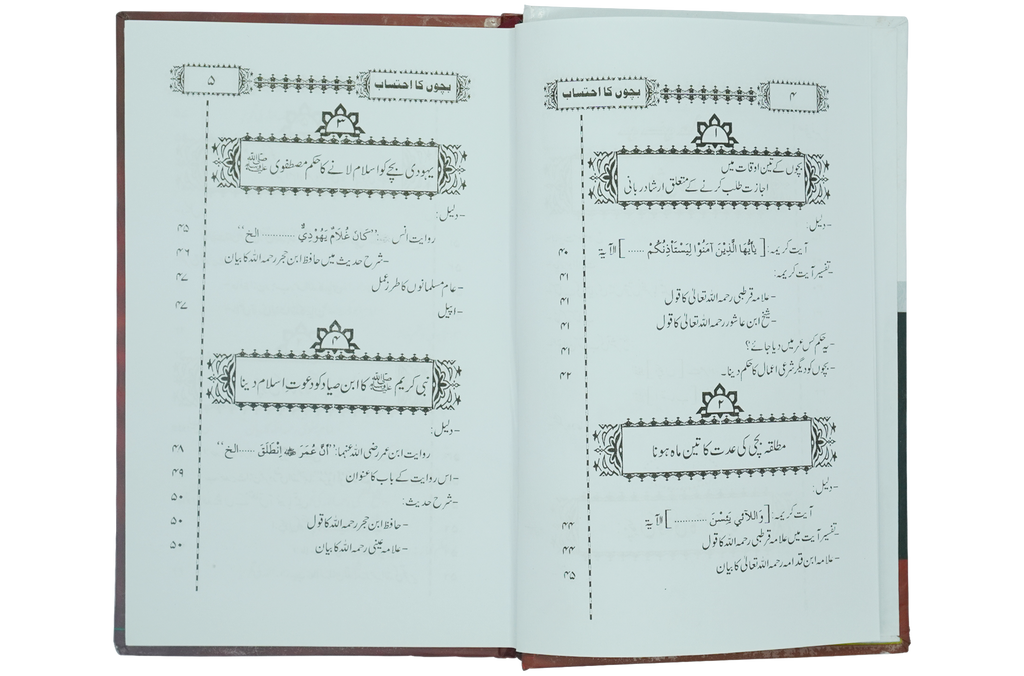 ۴
بچوں کا احتساب
۱
بچوں کے تین اوقات میں
اجازت طلب کرنے کے متعلق ارشاد ربانی
- دلیل:
آیت کریمہ: [یٰاَیُّهَا الَّذِیْنَ آمَنُوْا لِیَسْتَأْذِنْكُمْ ......] الآیۃ ۴۰
- تفسیر آیت کریمہ: ۴۱
- علامہ قرطبی رحمہ اللہ تعالیٰ کا قول ۴۱
- شیخ ابن عاشور رحمہ اللہ تعالیٰ کا قول ۴۱
- یہ حکم کس عمر میں دیا جائے؟ ۴۱
- بچوں کو دیگر شرعی اعمال کا حکم دینا۔ ۴۲
۲
مطلقہ بچی کی عدت کا تین ماہ ہونا
- دلیل:
آیت کریمہ: [وَاللَّآئِي يَئِسْنَ ............] الآیۃ ۴۴
- تفسیر آیت میں علامہ قرطبی رحمہ اللہ کا قول ۴۴
- علامہ ابن قدامہ رحمہ اللہ تعالیٰ کا بیان ۴۵
بچوں کا احتساب
۵
۳
یہودی بچے کو اسلام لانے کا حکم مصطفوی ﷺ
- دلیل:
روایت انس ؓ: ’’كَانَ غُلَامٌ يَهُوْدِيٌّ ............ الخ‘‘ ۴۵
- شرح حدیث میں حافظ ابن حجر رحمہ اللہ کا بیان ۴۶
- عام مسلمانوں کا طرز عمل ۴۷
- اپیل ۴۷
۴
نبی کریم ﷺ کا ابن صیاد کو دعوت اسلام دینا
- دلیل:
روایت ابن عمر رضی اللہ عنہما: ’’أَنَّ عُمَرَ ؓ اِنْطَلَقَ ...... الخ‘‘ ۴۸
- اس روایت کے باب کا عنوان ۴۹
- شرح حدیث: ۵۰
- حافظ ابن حجر رحمہ اللہ کا قول ۵۰
- علامہ عینی رحمہ اللہ کا بیان ۵۰